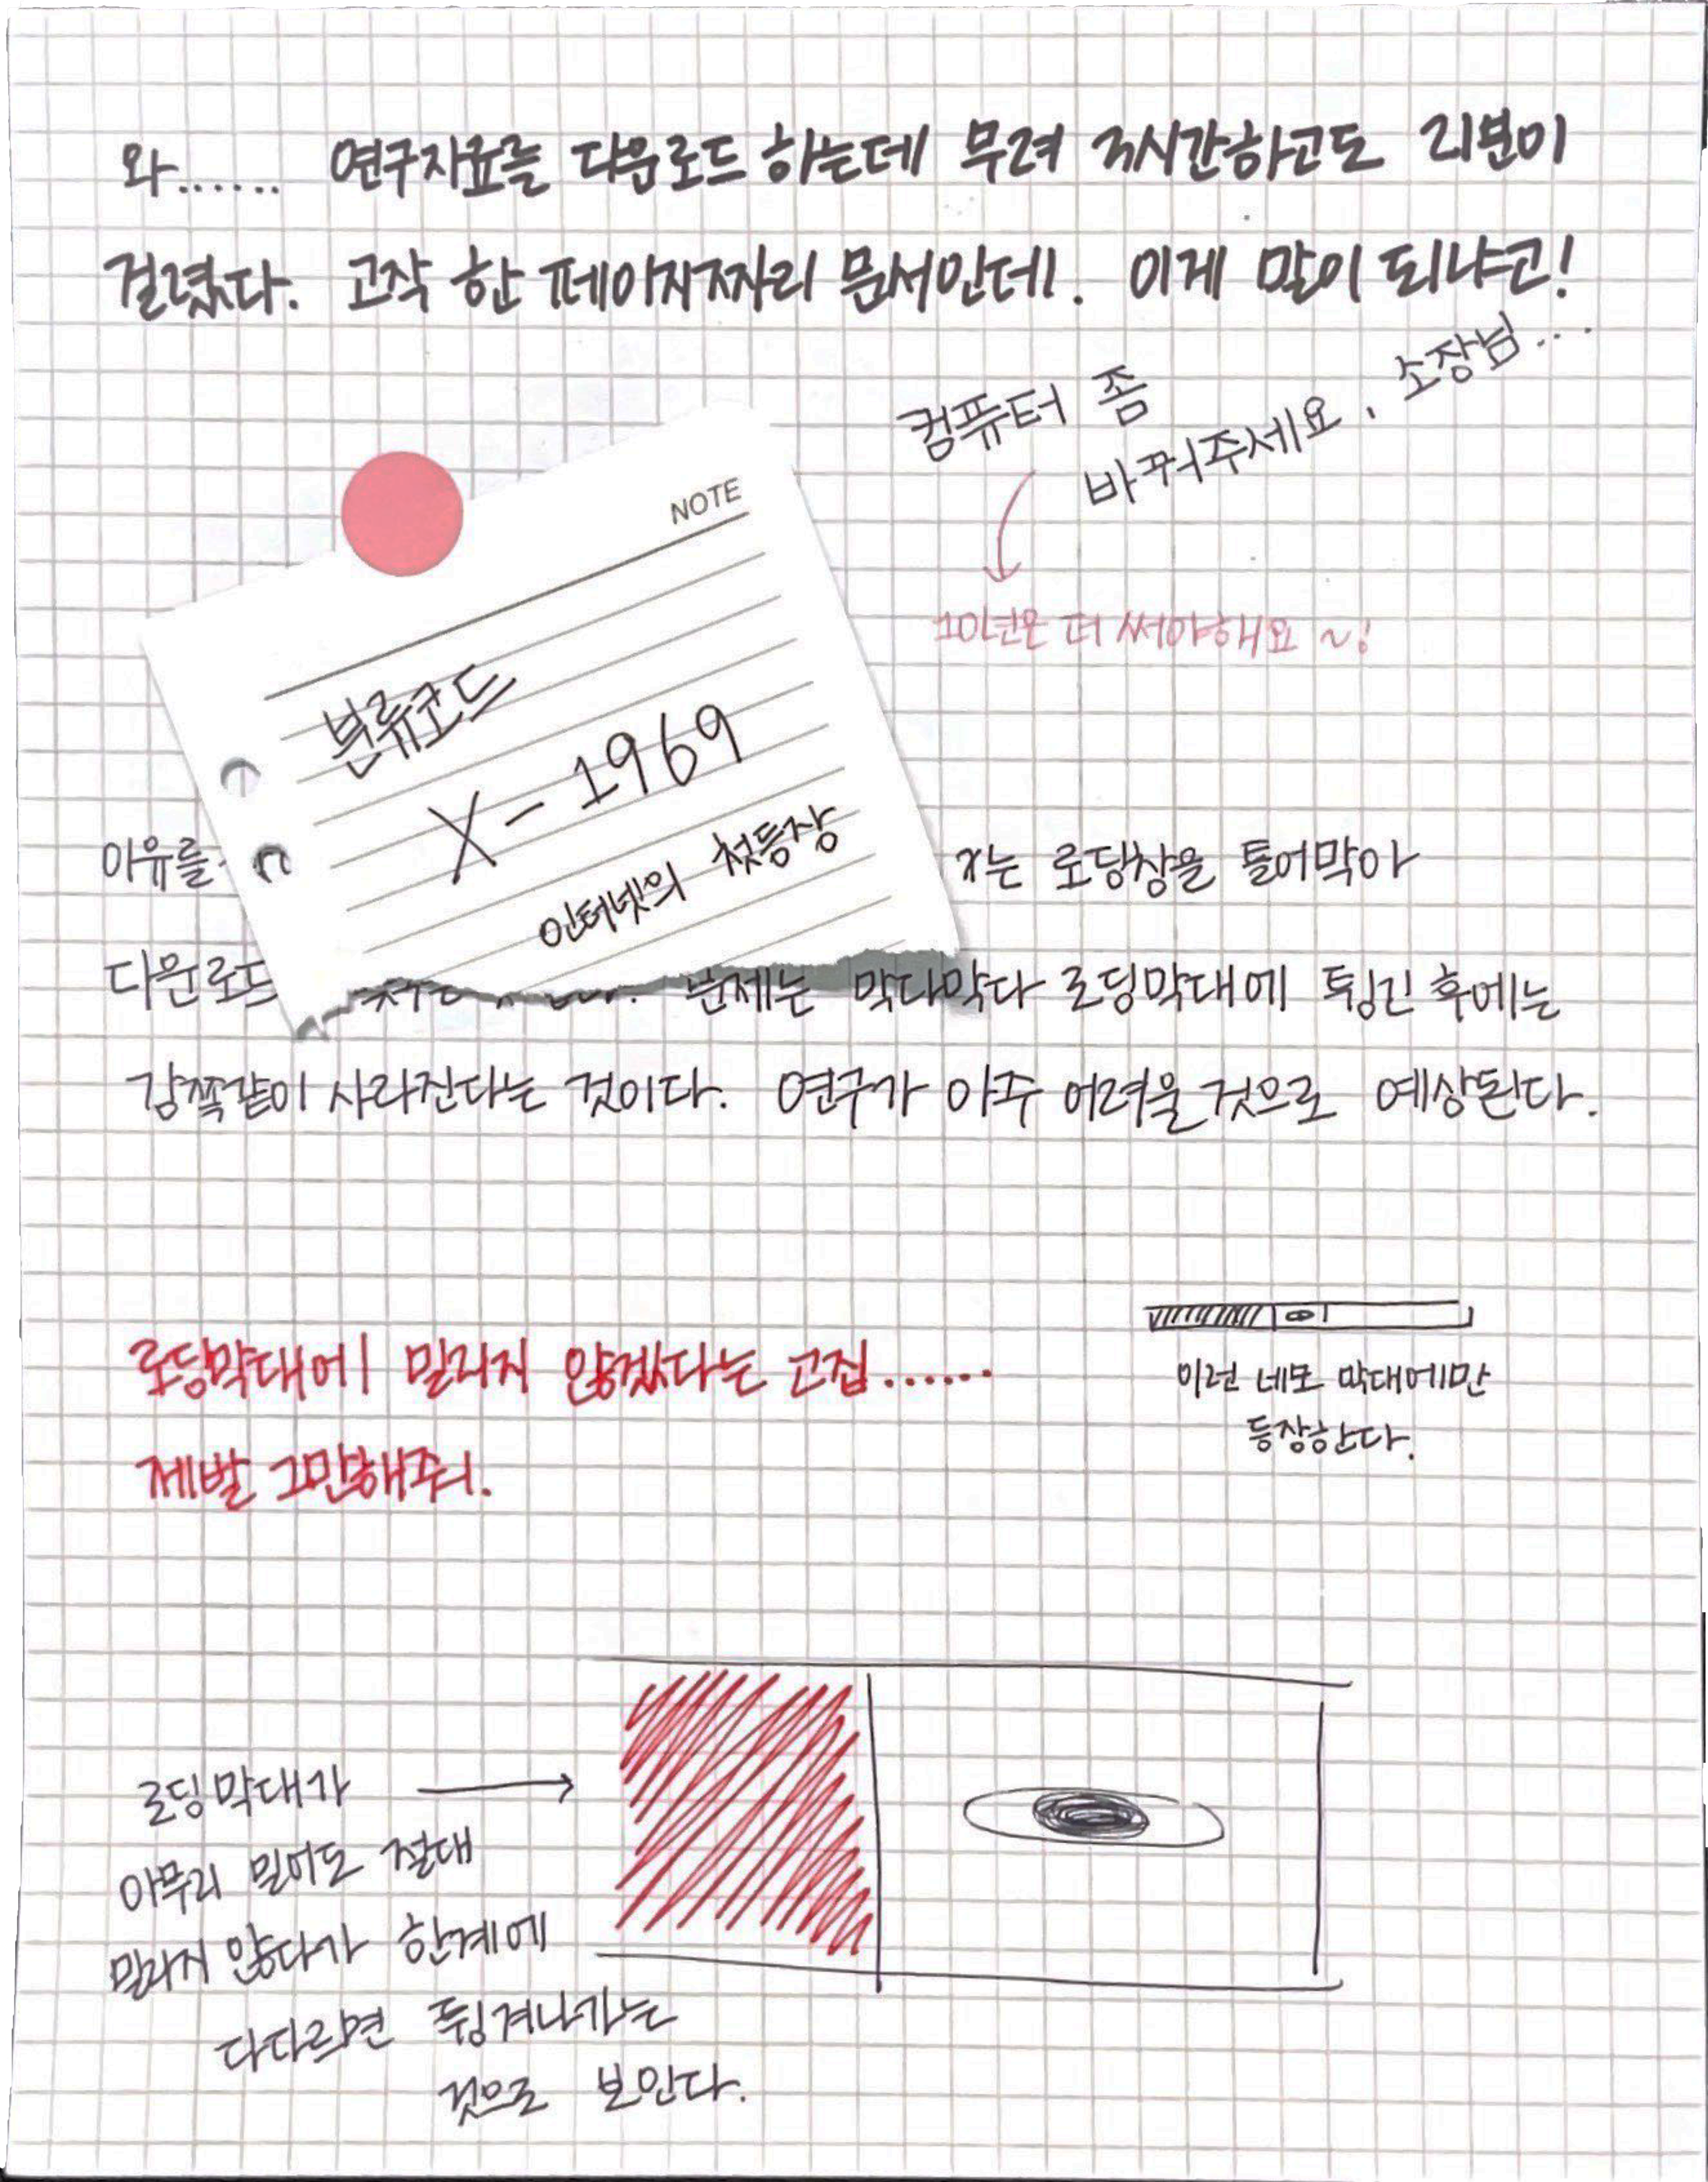 와...... 연구자료를 다운로드 하는데 무려 3시간하고도 21분이
걸렸다. 고작 한 페이지짜리 문서인데. 이게 말이 되냐고!
컴퓨터 좀
바꿔주세요, 소장님...
10년은 더 써야해요~!
NOTE
분류코드
X-1969
인터넷의 첫등장
이유를
X는 로딩창을 틀어막아
다운로드
문제는 막다막다 로딩막대에 튕긴 후에는
감쪽같이 사라진다는 것이다. 연구가 아주 어려울 것으로 예상된다.
로딩막대에 밀리지 않겠다는 고집......
제발 그만해줘.
이런 네모 막대에만
등장한다.
로딩막대가
아무리 밀어도 절대
밀리지 않다가 한계에
다다르면 튕겨나가는
것으로 보인다.